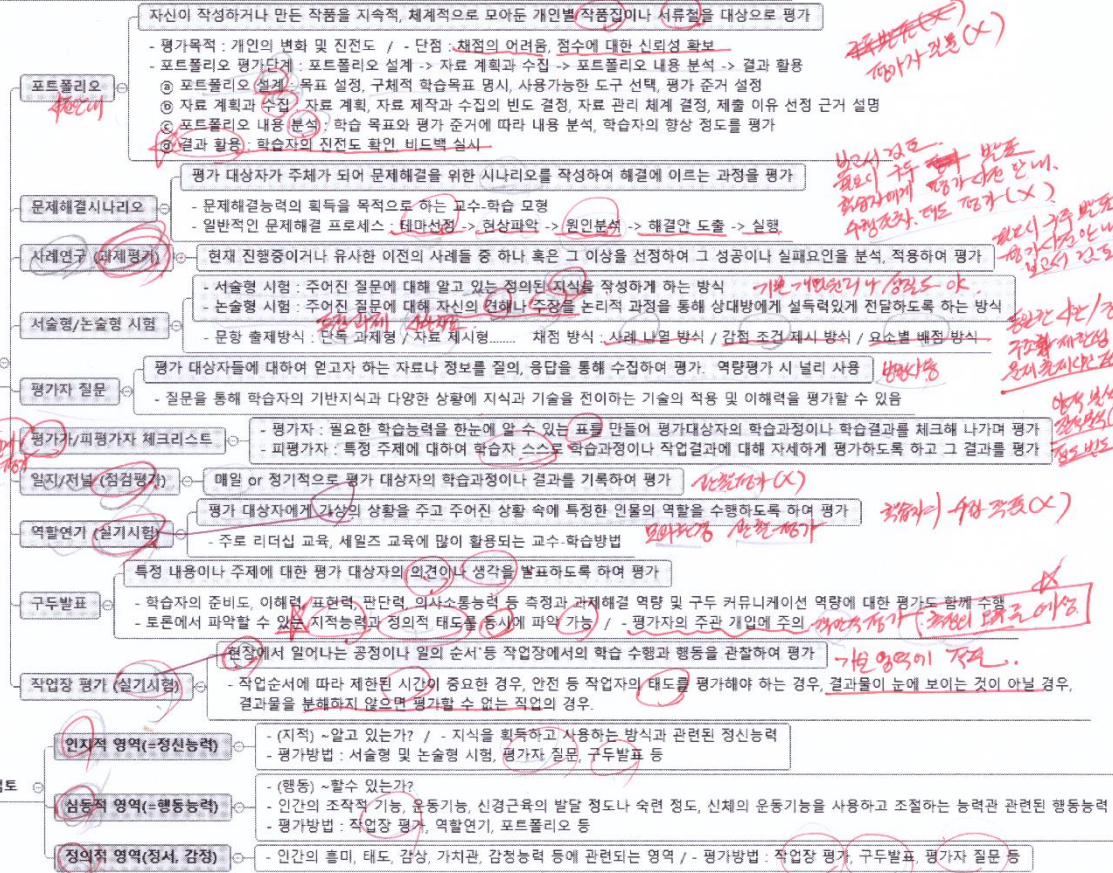 자신이 작성하거나 만든 작품을 지속적, 체계적으로 모아둔 개인별 작품집이나 서류철을 대상으로 평가
포트폴리오
- 평가목적 : 개인의 변화 및 진전도 / - 단점 : 채점의 어려움, 점수에 대한 신뢰성 확보
- 포트폴리오 평가단계 : 포트폴리오 설계 -> 자료 계획과 수집 -> 포트폴리오 내용 분석 -> 결과 활용
ⓐ 포트폴리오 설계 : 목표 설정, 구체적 학습목표 명시, 사용가능한 도구 선택, 평가 준거 설정
ⓑ 자료 계획과 수집 : 자료 계획, 자료 제작과 수집의 빈도 결정, 자료 관리 체계 결정, 제출 이유 선정 근거 설명
ⓒ 포트폴리오 내용 분석 : 학습 목표와 평가 준거에 따라 내용 분석, 학습자의 향상 정도를 평가
ⓓ 결과 활용 : 학습자의 진전도 확인, 비드백 실시
평가자 질문 (X)
보고서 검토.
필요시 구두 발표
학습자에게 평가 사전 안내.
수행준작, 태도 평가 (X)
평가 대상자가 주체가 되어 문제해결을 위한 시나리오를 작성하여 해결에 이르는 과정을 평가
문제해결시나리오
- 문제해결능력의 획득을 목적으로 하는 교수-학습 모형
- 일반적인 문제해결 프로세스 : 테마선정 -> 현상파악 -> 원인분석 -> 해결안 도출 -> 실행
사례연구 (과제평가)
현재 진행중이거나 유사한 이전의 사례들 중 하나 혹은 그 이상을 선정하여 그 성공이나 실패요인을 분석, 적용하여 평가
필요시 구두 발표
보고서 검토
서술형/논술형 시험
- 서술형 시험 : 주어진 질문에 대해 알고 있는 정의된 지식을 작성하게 하는 방식
- 논술형 시험 : 주어진 질문에 대해 자신의 견해나 주장을 논리적 과정을 통해 상대방에게 설득력있게 전달하도록 하는 방식
- 문항 출제방식 : 단독 과제형 / 자료 제시형........ 채점 방식 : 사례 나열 방식 / 감점 조건 제시 방식 / 요소별 배점 방식
평가 대상자들에 대하여 얻고자 하는 자료나 정보를 질의, 응답을 통해 수집하여 평가. 역량평가 시 널리 사용
평가자 질문
- 질문을 통해 학습자의 기반지식과 다양한 상황에 지식과 기술을 전이하는 기술의 적용 및 이해력을 평가할 수 있음
평가가/피평가자 체크리스트
- 평가자 : 필요한 학습능력을 한눈에 알 수 있는 표를 만들어 평가대상자의 학습과정이나 학습결과를 체크해 나가며 평가
- 피평가자 : 특정 주제에 대하여 학습자 스스로 학습과정이나 작업결과에 대해 자세하게 평가하도록 하고 그 결과를 평가
일지/저널 (점검평가)
매일 or 정기적으로 평가 대상자의 학습과정이나 결과를 기록하여 평가
관찰평가 (X)
평가 대상자에게 가상의 상황을 주고 주어진 상황 속에 특정한 인물의 역할을 수행하도록 하여 평가
역할연기 (실기시험)
- 주로 리더십 교육, 세일즈 교육에 많이 활용되는 교수-학습방법
모의환경 관찰평가
특정 내용이나 주제에 대한 평가 대상자의 의견이나 생각을 발표하도록 하여 평가
구두발표
- 학습자의 준비도, 이해력, 표현력, 판단력, 의사소통능력 등 측정과 과제해결 역량 및 구두 커뮤니케이션 역량에 대한 평가도 함께 수행
- 토론에서 파악할 수 있는 지적능력과 정의적 태도를 동시에 파악 가능 / - 평가자의 주관 개입에 주의
현장에서 일어나는 공정이나 일의 순서 등 작업장에서의 학습 수행과 행동을 관찰하여 평가
작업장 평가 (실기시험)
- 작업순서에 따라 제한된 시간이 중요한 경우, 안전 등 작업자의 태도를 평가해야 하는 경우, 결과물이 눈에 보이는 것이 아닐 경우,
결과물을 분해하지 않으면 평가할 수 없는 직업의 경우.
인지적 영역(=정신능력)
- (지적) ~알고 있는가? / - 지식을 획득하고 사용하는 방식과 관련된 정신능력
- 평가방법 : 서술형 및 논술형 시험, 평가자 질문, 구두발표 등
심동적 영역(=행동능력)
- (행동) ~할수 있는가?
- 인간의 조작적 기능, 운동기능, 신경근육의 발달 정도나 숙련 정도, 신체의 운동기능을 사용하고 조절하는 능력관 관련된 행동능력
- 평가방법 : 작업장 평가, 역할연기, 포트폴리오 등
정의적 영역(정서, 감정)
- 인간의 흥미, 태도, 감상, 가치관, 감청능력 등에 관련되는 영역 / - 평가방법 : 작업장 평가, 구두발표, 평가자 질문 등